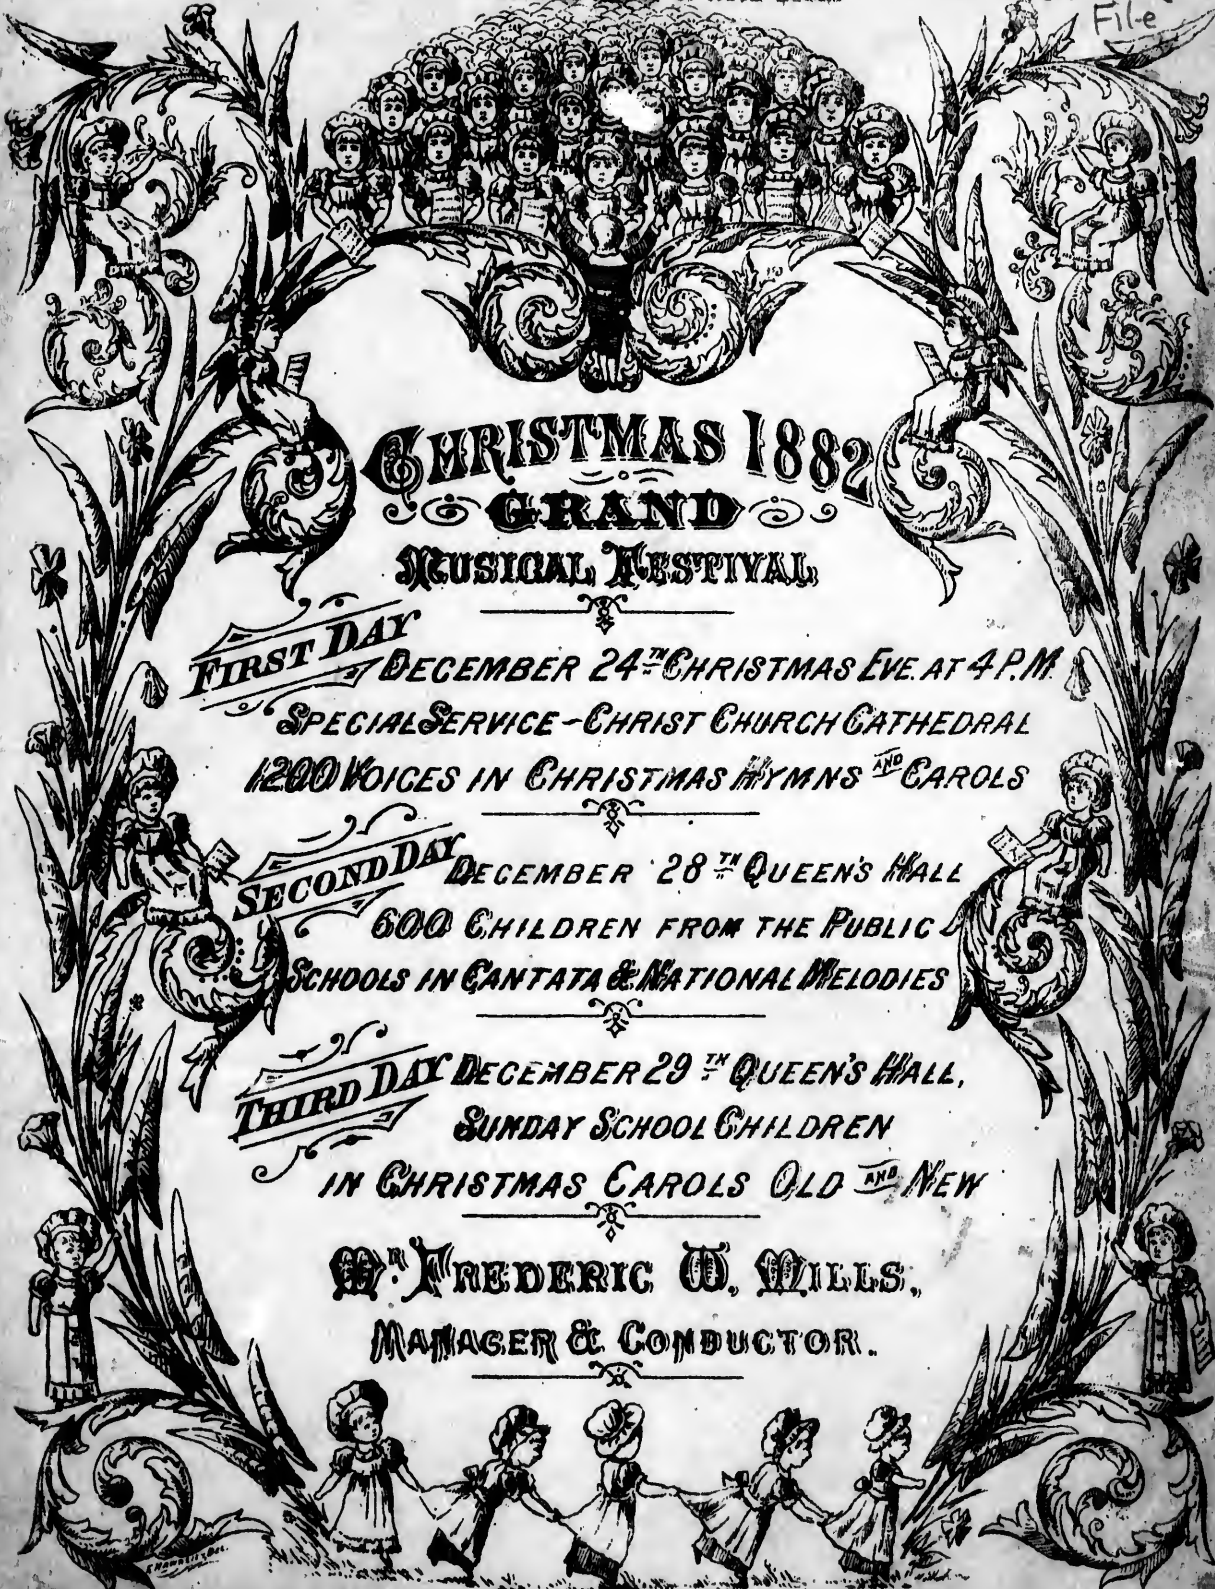 File
CHRISTMAS 1882
GRAND
MUSICAL FESTIVAL
FIRST DAY DECEMBER 24TH CHRISTMAS EVE. AT 4 P.M.
SPECIAL SERVICE - CHRIST CHURCH CATHEDRAL
1200 VOICES IN CHRISTMAS HYMNS AND CAROLS
SECOND DAY DECEMBER 28TH QUEEN'S HALL
600 CHILDREN FROM THE PUBLIC
SCHOOLS IN CANTATA & NATIONAL MELODIES
THIRD DAY DECEMBER 29TH QUEEN'S HALL,
SUNDAY SCHOOL CHILDREN
IN CHRISTMAS CAROLS OLD AND NEW
MR. FREDERIC W. MILLS,
MANAGER & CONDUCTOR.